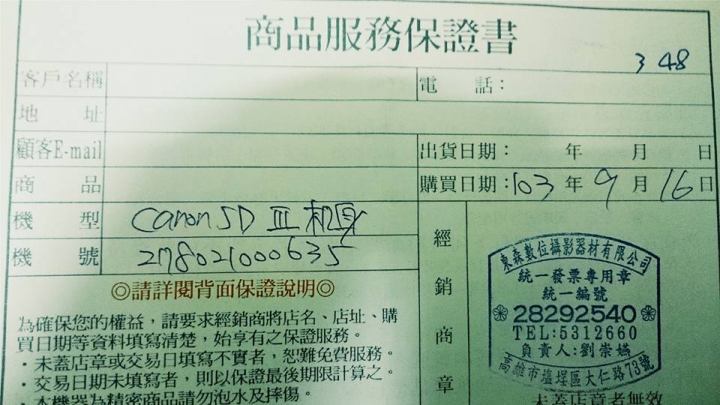 商品服務保證書
3 48
客戶名稱 電話：
地址
顧客E-mail 出貨日期： 年 月 日
商品 購買日期：103 年 9 月 16 日
機型 Canon 5D III 机身
機號 278021000635
經銷商章
東森數位攝影器材有限公司
統一發票專用章
統一編號
28292540
TEL:5312660
負責人:劉崇嬿
高雄市塩埕區大仁路73號
◎請詳閱背面保證說明◎
為確保您的權益，請要求經銷商將店名、店址、購
買日期等資料填寫清楚，始享有之保證服務。
·未蓋店章或交易日填寫不實者，恕難免費服務。
·交易日期未填寫者，則以保證最後期限計算之。
·本機器為精密商品請勿泡水及摔傷。
未蓋店章者無效